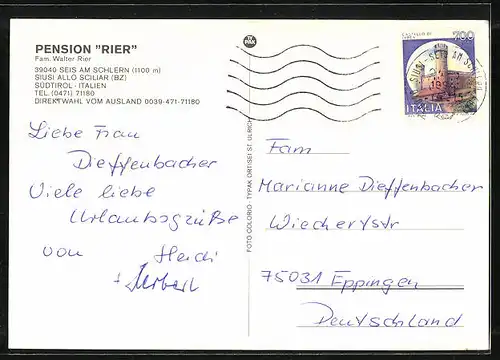 PENSION "RIER"
Fam. Walter Rier
39040 SEIS AM SCHLERN (1100 m)
SIUSI ALLO SCILIAR (BZ)
SÜDTIROL - ITALIEN
TEL. (0471) 71180
DIREKTWAHL VOM AUSLAND 0039-471-71180
Liebe Frau
Dieffenbacher
Viele liebe
Urlaubsgrüße
von Heidi
+ Herbert
FOTO COLORIO - TYPAK ORTISEI ST. ULRICH
700
ITALIA
SIUSI - SEIS AM SCHLERN
Fam
Marianne Dieffenbacher
Wiechertstr
75031 Eppingen
Deutschland